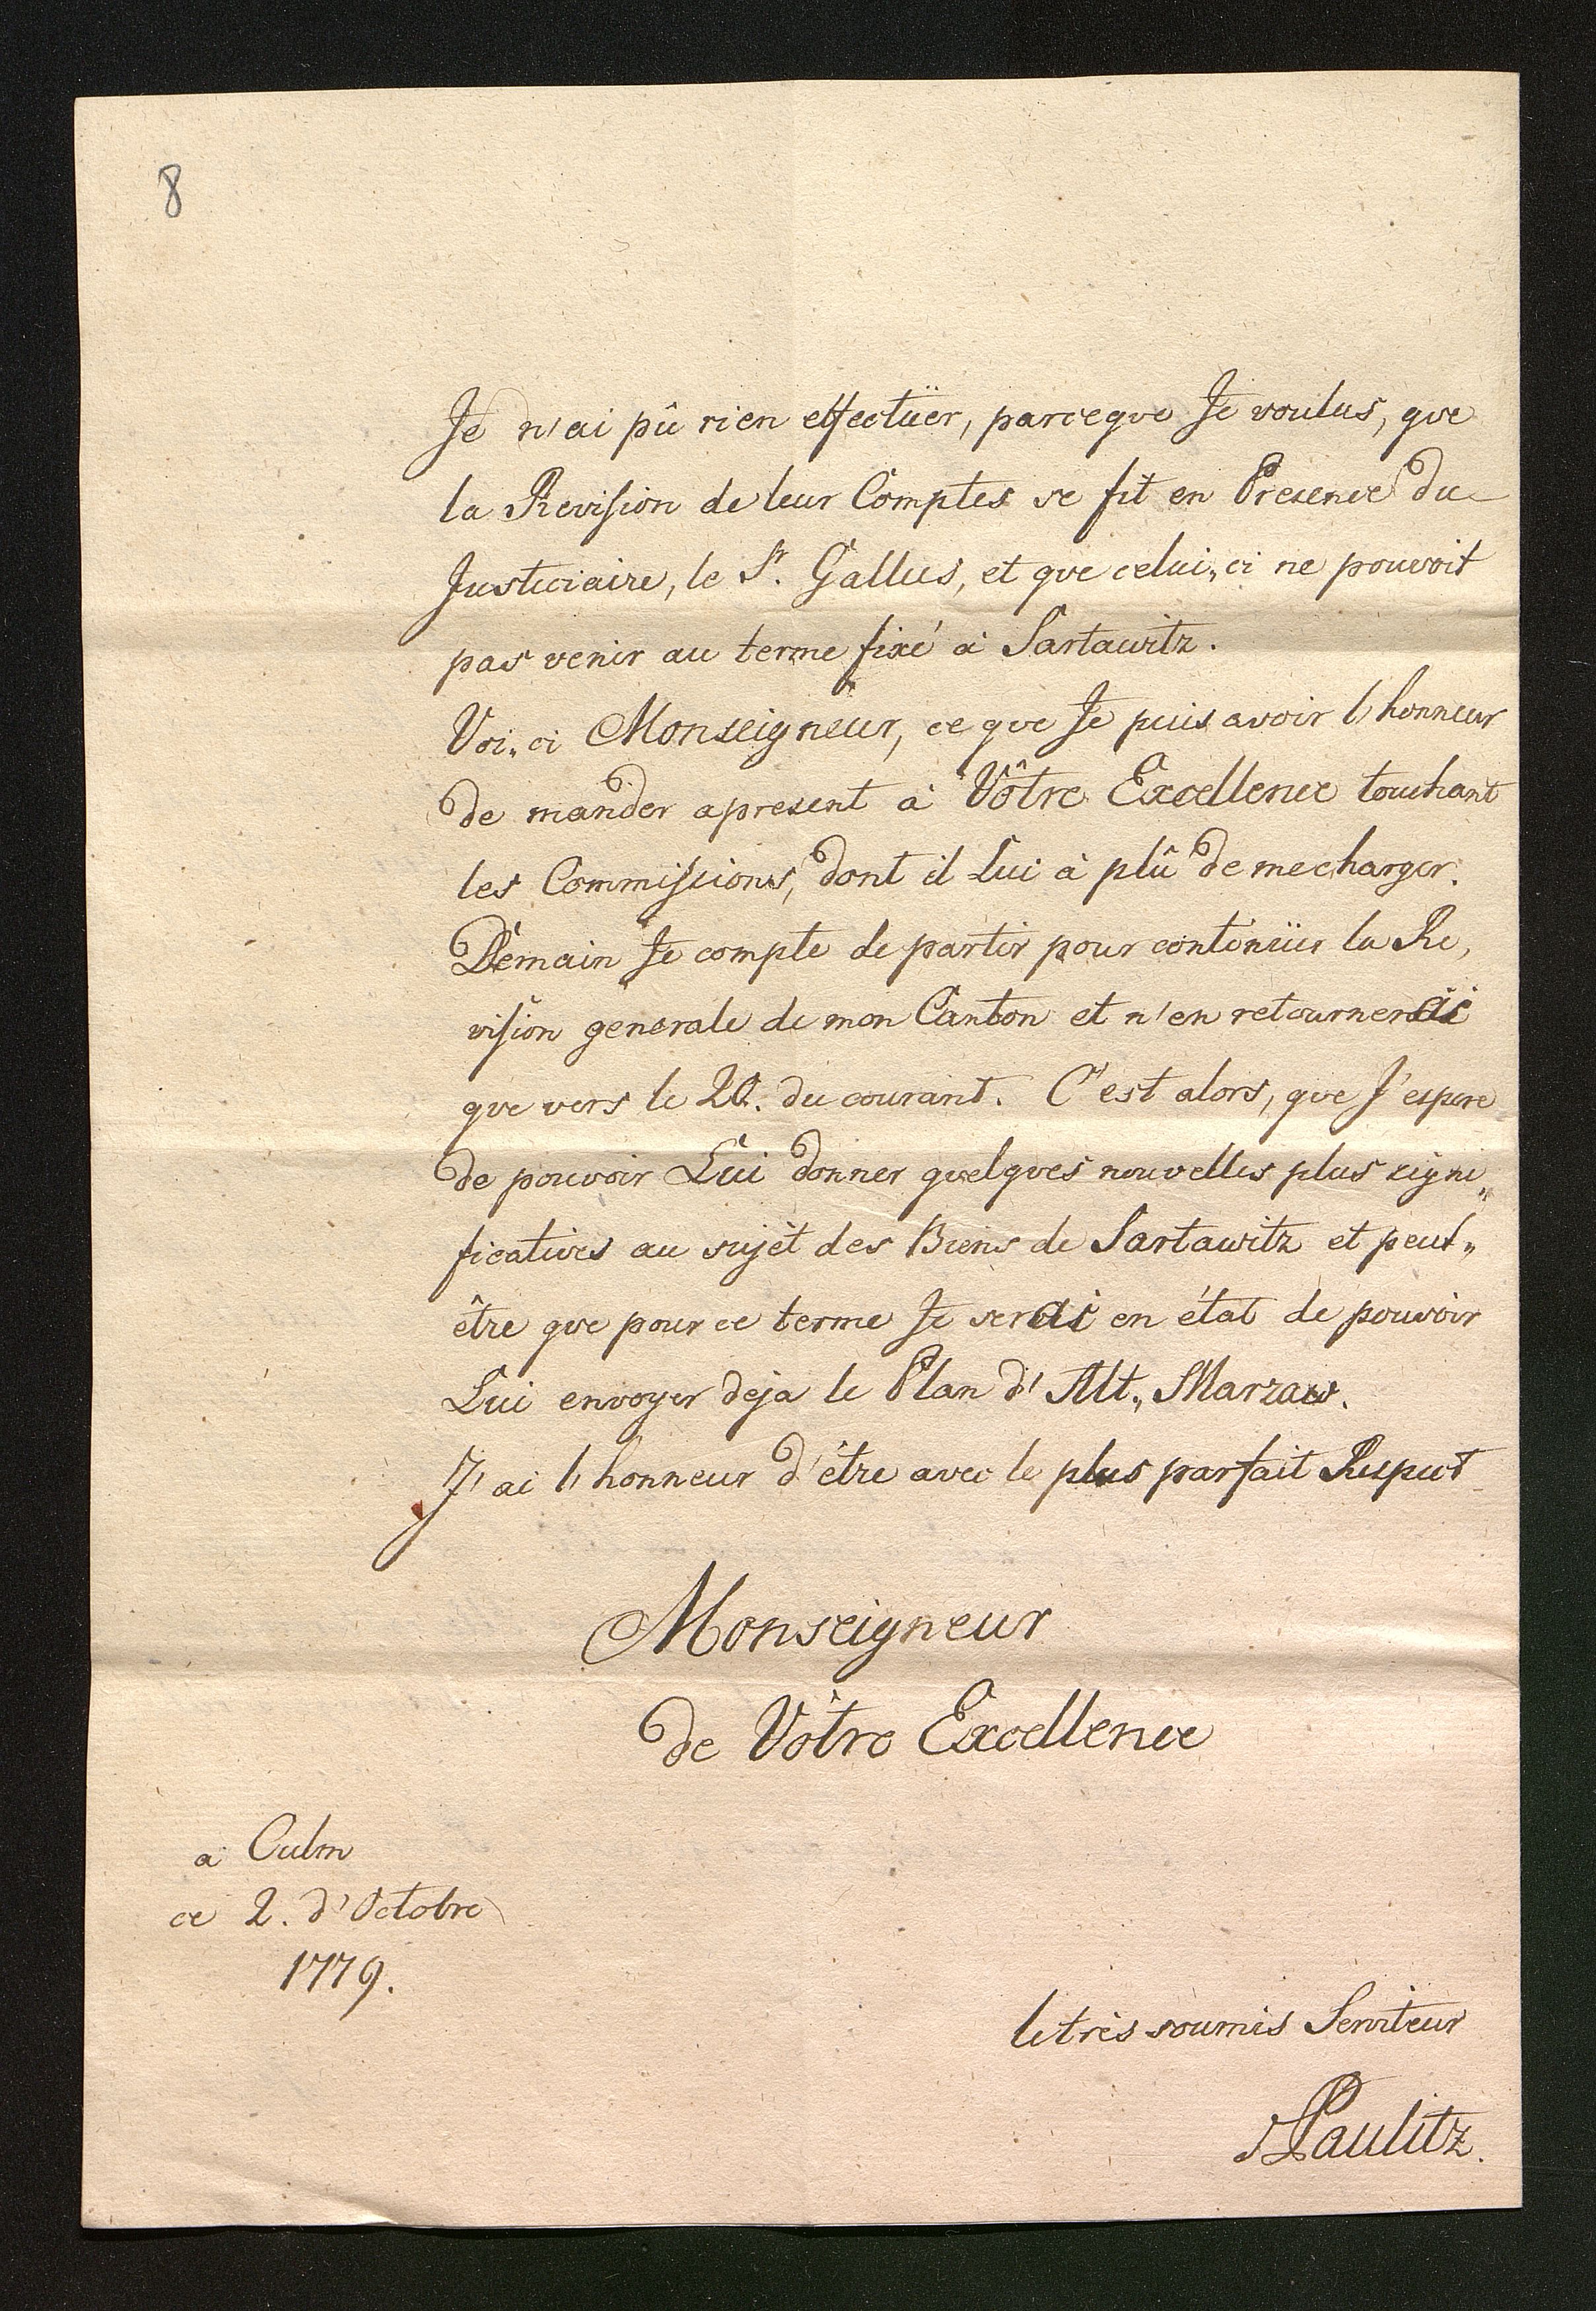 8
Je n'ai pû rien effectüer, parceque Je voulus, que
la Revision de leur Comptes se fit en Presence du
Justiciaire, le Sr. Gallus, et que celui„ci ne pouvoit
pas venir au terme fixé à Sartawitz.
Voi„ci Monseigneur, ce que Je puis avoir l'honneur
de mander apresent à Vôtre Excellence touchant
les Commissions, dont il Lui à plû de mecharger.
Demain Je compte de partir pour continüer la Re,
vision generale de mon Canton et n'en retournerai
que vers le 20. du courant. C'est alors, que J'espere
de pouvoir Lui donner quelques nouvelles plus signi„
ficatives au sujèt des Biens de Sartawitz et peut„
être que pour ce terme Je serai en état de pouvoir
Lui envoyer deja le Plan d'Alt„Marzaw.
J'ai l'honneur d'être avec le plus parfait Respect
Monseigneur
de Vôtre Excellence
à Culm
ce 2. d'Octobre
1779.
le très soumis Serviteur
Paulitz.